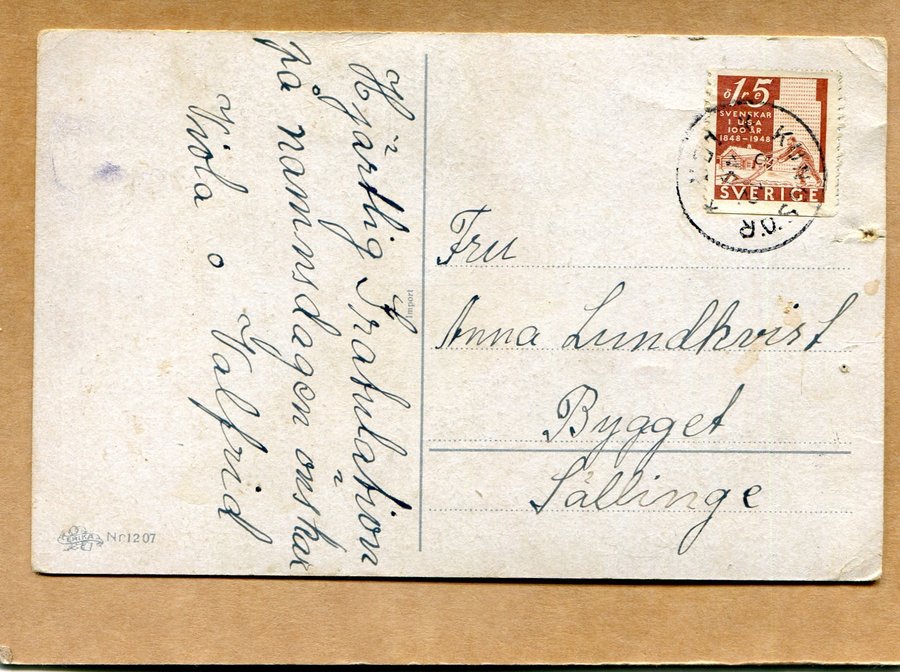 Hjärtlig Gratulation
på namnsdagen önskar
Viola o Valfrid
Import
Fru
Anna Lundkvist
Bygget
Sällinge
15
öre
SVENSKAR
I U.S.A
100 ÅR
1848-1948
SVERIGE
ERIKA
Nr 1207